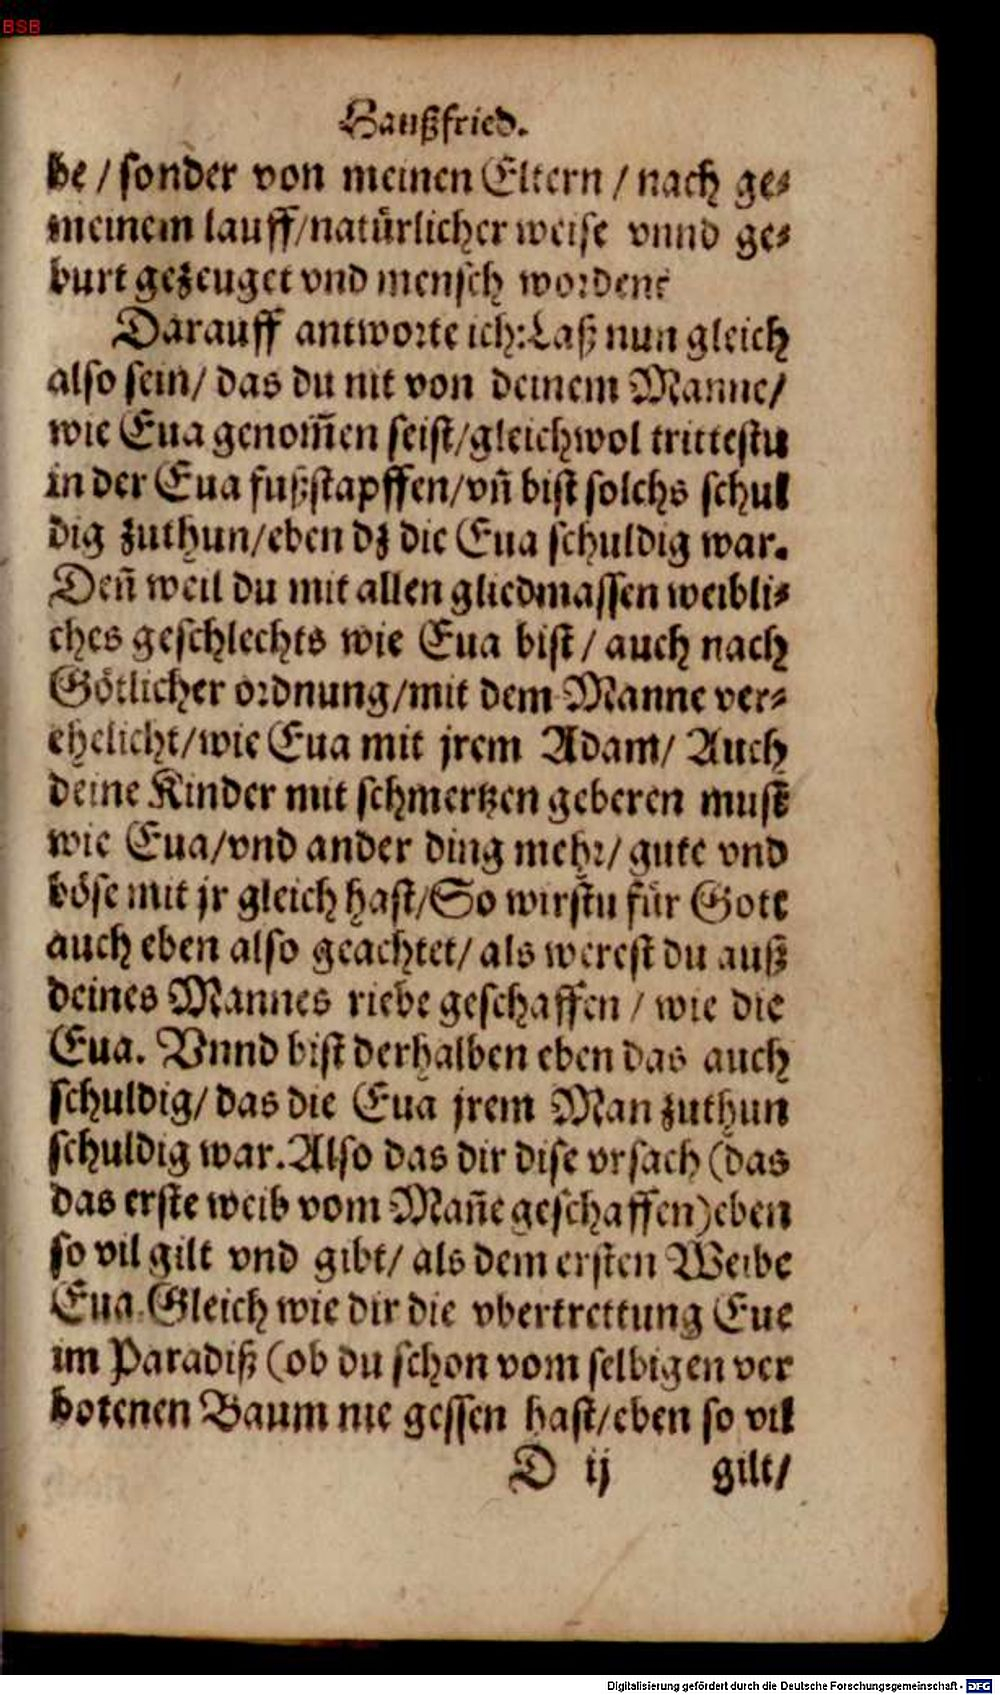 BSB
Haußfried.
be / sonder von meinen Eltern / nach ge⸗
meinem lauff/natürlicher weise vnnd ge⸗
burt gezeuget vnd mensch worden?
Darauff antworte ich: Laß nun gleich
also sein/ das du nit von deinem Manne/
wie Eua genom̃en seist/gleichwol trittestu
in der Eua fußstapffen/vñ bist solchs schul
dig zuthun/eben dz die Eua schuldig war.
Deñ weil du mit allen gliedmassen weibli⸗
ches geschlechts wie Eua bist / auch nach
Götlicher ordnung/mit dem Manne ver⸗
ehelicht/wie Eua mit jrem Adam/ Auch
deine Kinder mit schmertzen geberen must
wie Eua/vnd ander ding mehr/ gute vnd
böse mit jr gleich hast/So wirstu für Gott
auch eben also geachtet/ als werest du auß
deines Mannes riebe geschaffen / wie die
Eua. Vnnd bist derhalben eben das auch
schuldig/ das die Eua jrem Man zuthun
schuldig war. Also das dir dise vrsach (das
das erste weib vom Mañe geschaffen) eben
so vil gilt vnd gibt/ als dem ersten Weibe
Eua. Gleich wie dir die vbertrettung Eue
im Paradiß (ob du schon vom selbigen ver
botenen Baum nie gessen hast/eben so vil
D ij gilt/
Digitalisierung gefördert durch die Deutsche Forschungsgemeinschaft - DFG